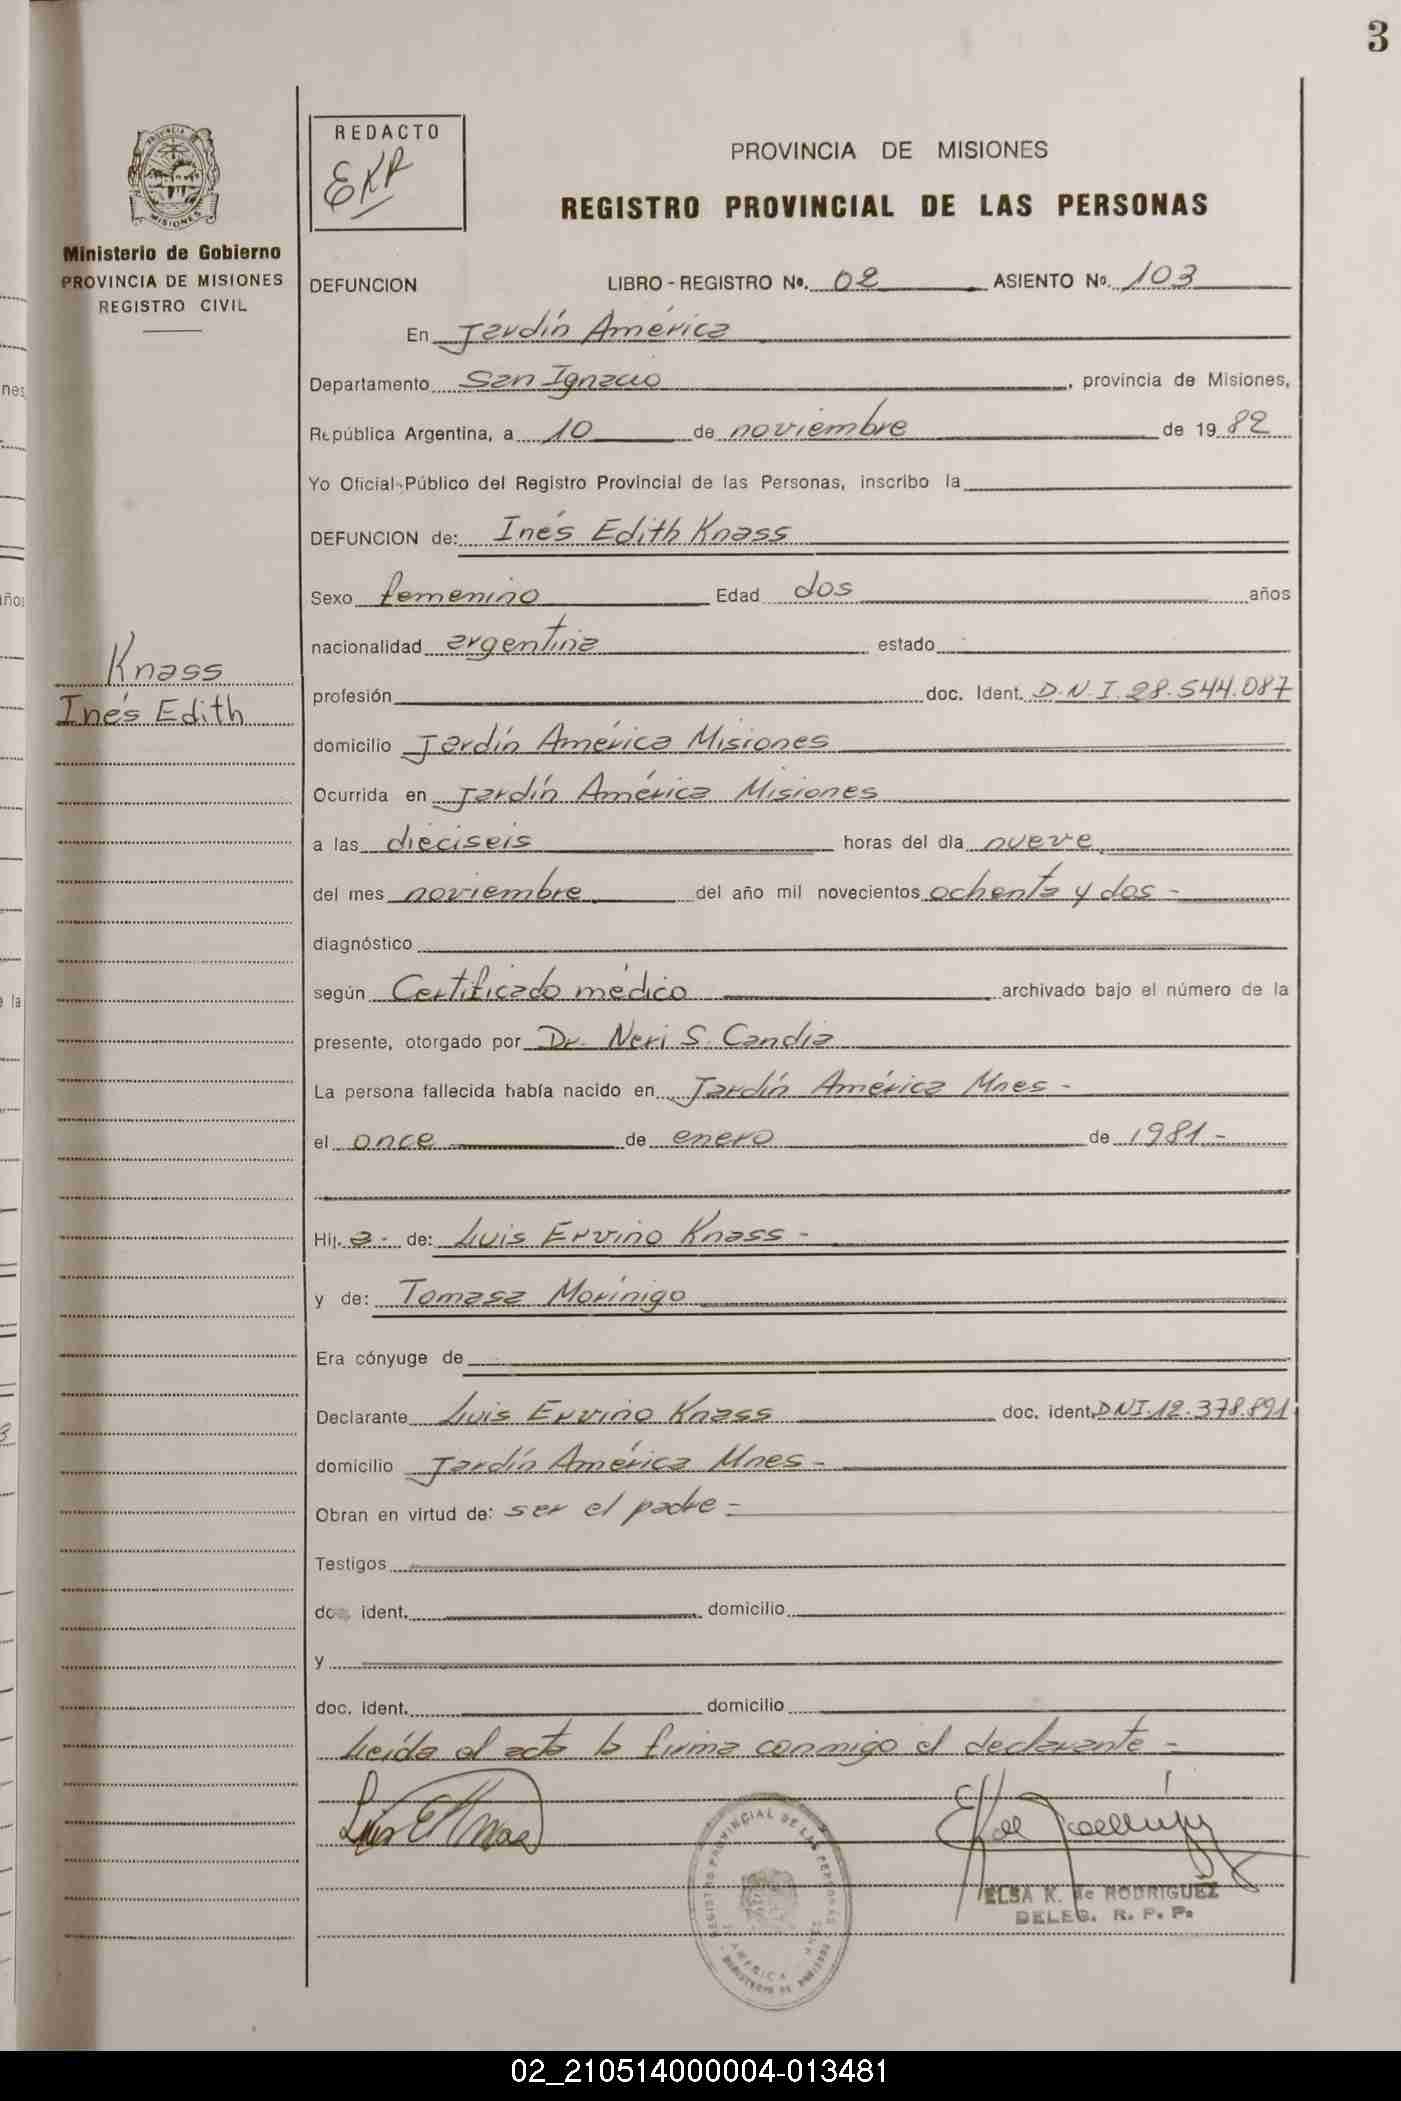 3
REDACTO
EKR
PROVINCIA DE MISIONES
REGISTRO PROVINCIAL DE LAS PERSONAS
PROVINCIA DE
MISIONES
Ministerio de Gobierno
PROVINCIA DE MISIONES
REGISTRO CIVIL
DEFUNCION LIBRO - REGISTRO Nº. 02 ASIENTO Nº. 103
En Jardín América
Departamento San Ignacio, provincia de Misiones,
República Argentina, a 10 de noviembre de 1982
Yo Oficial Público del Registro Provincial de las Personas, inscribo la
DEFUNCION de: Inés Edith Knass
Sexo femenino Edad dos años
nacionalidad argentina estado
Knass
Inés Edith
profesión doc. Ident. D.N.I. 28.544.087
domicilio Jardín América Misiones
Ocurrida en Jardín América Misiones
a las dieciseis horas del día nueve
del mes noviembre del año mil novecientos ochenta y dos -
diagnóstico
según Certificado médico archivado bajo el número de la
presente, otorgado por Dr. Neri S. Candia
La persona fallecida había nacido en Jardín América Mnes -
el once de enero de 1981 -
Hij. a - de: Luis Ervino Knass -
y de: Tomasa Morínigo
Era cónyuge de
Declarante Luis Ervino Knass doc. ident. DNI.12.378.891
domicilio Jardín América Mnes -
Obran en virtud de: ser el padre -
Testigos
doc. ident. domicilio
y
doc. ident. domicilio
Leída el acta la firma conmigo el declarante -
ELSA K. de RODRIGUEZ
DELEG. R. P. P.
REGISTRO PROVINCIAL DE LAS PERSONAS
AMERICA
02_210514000004-013481